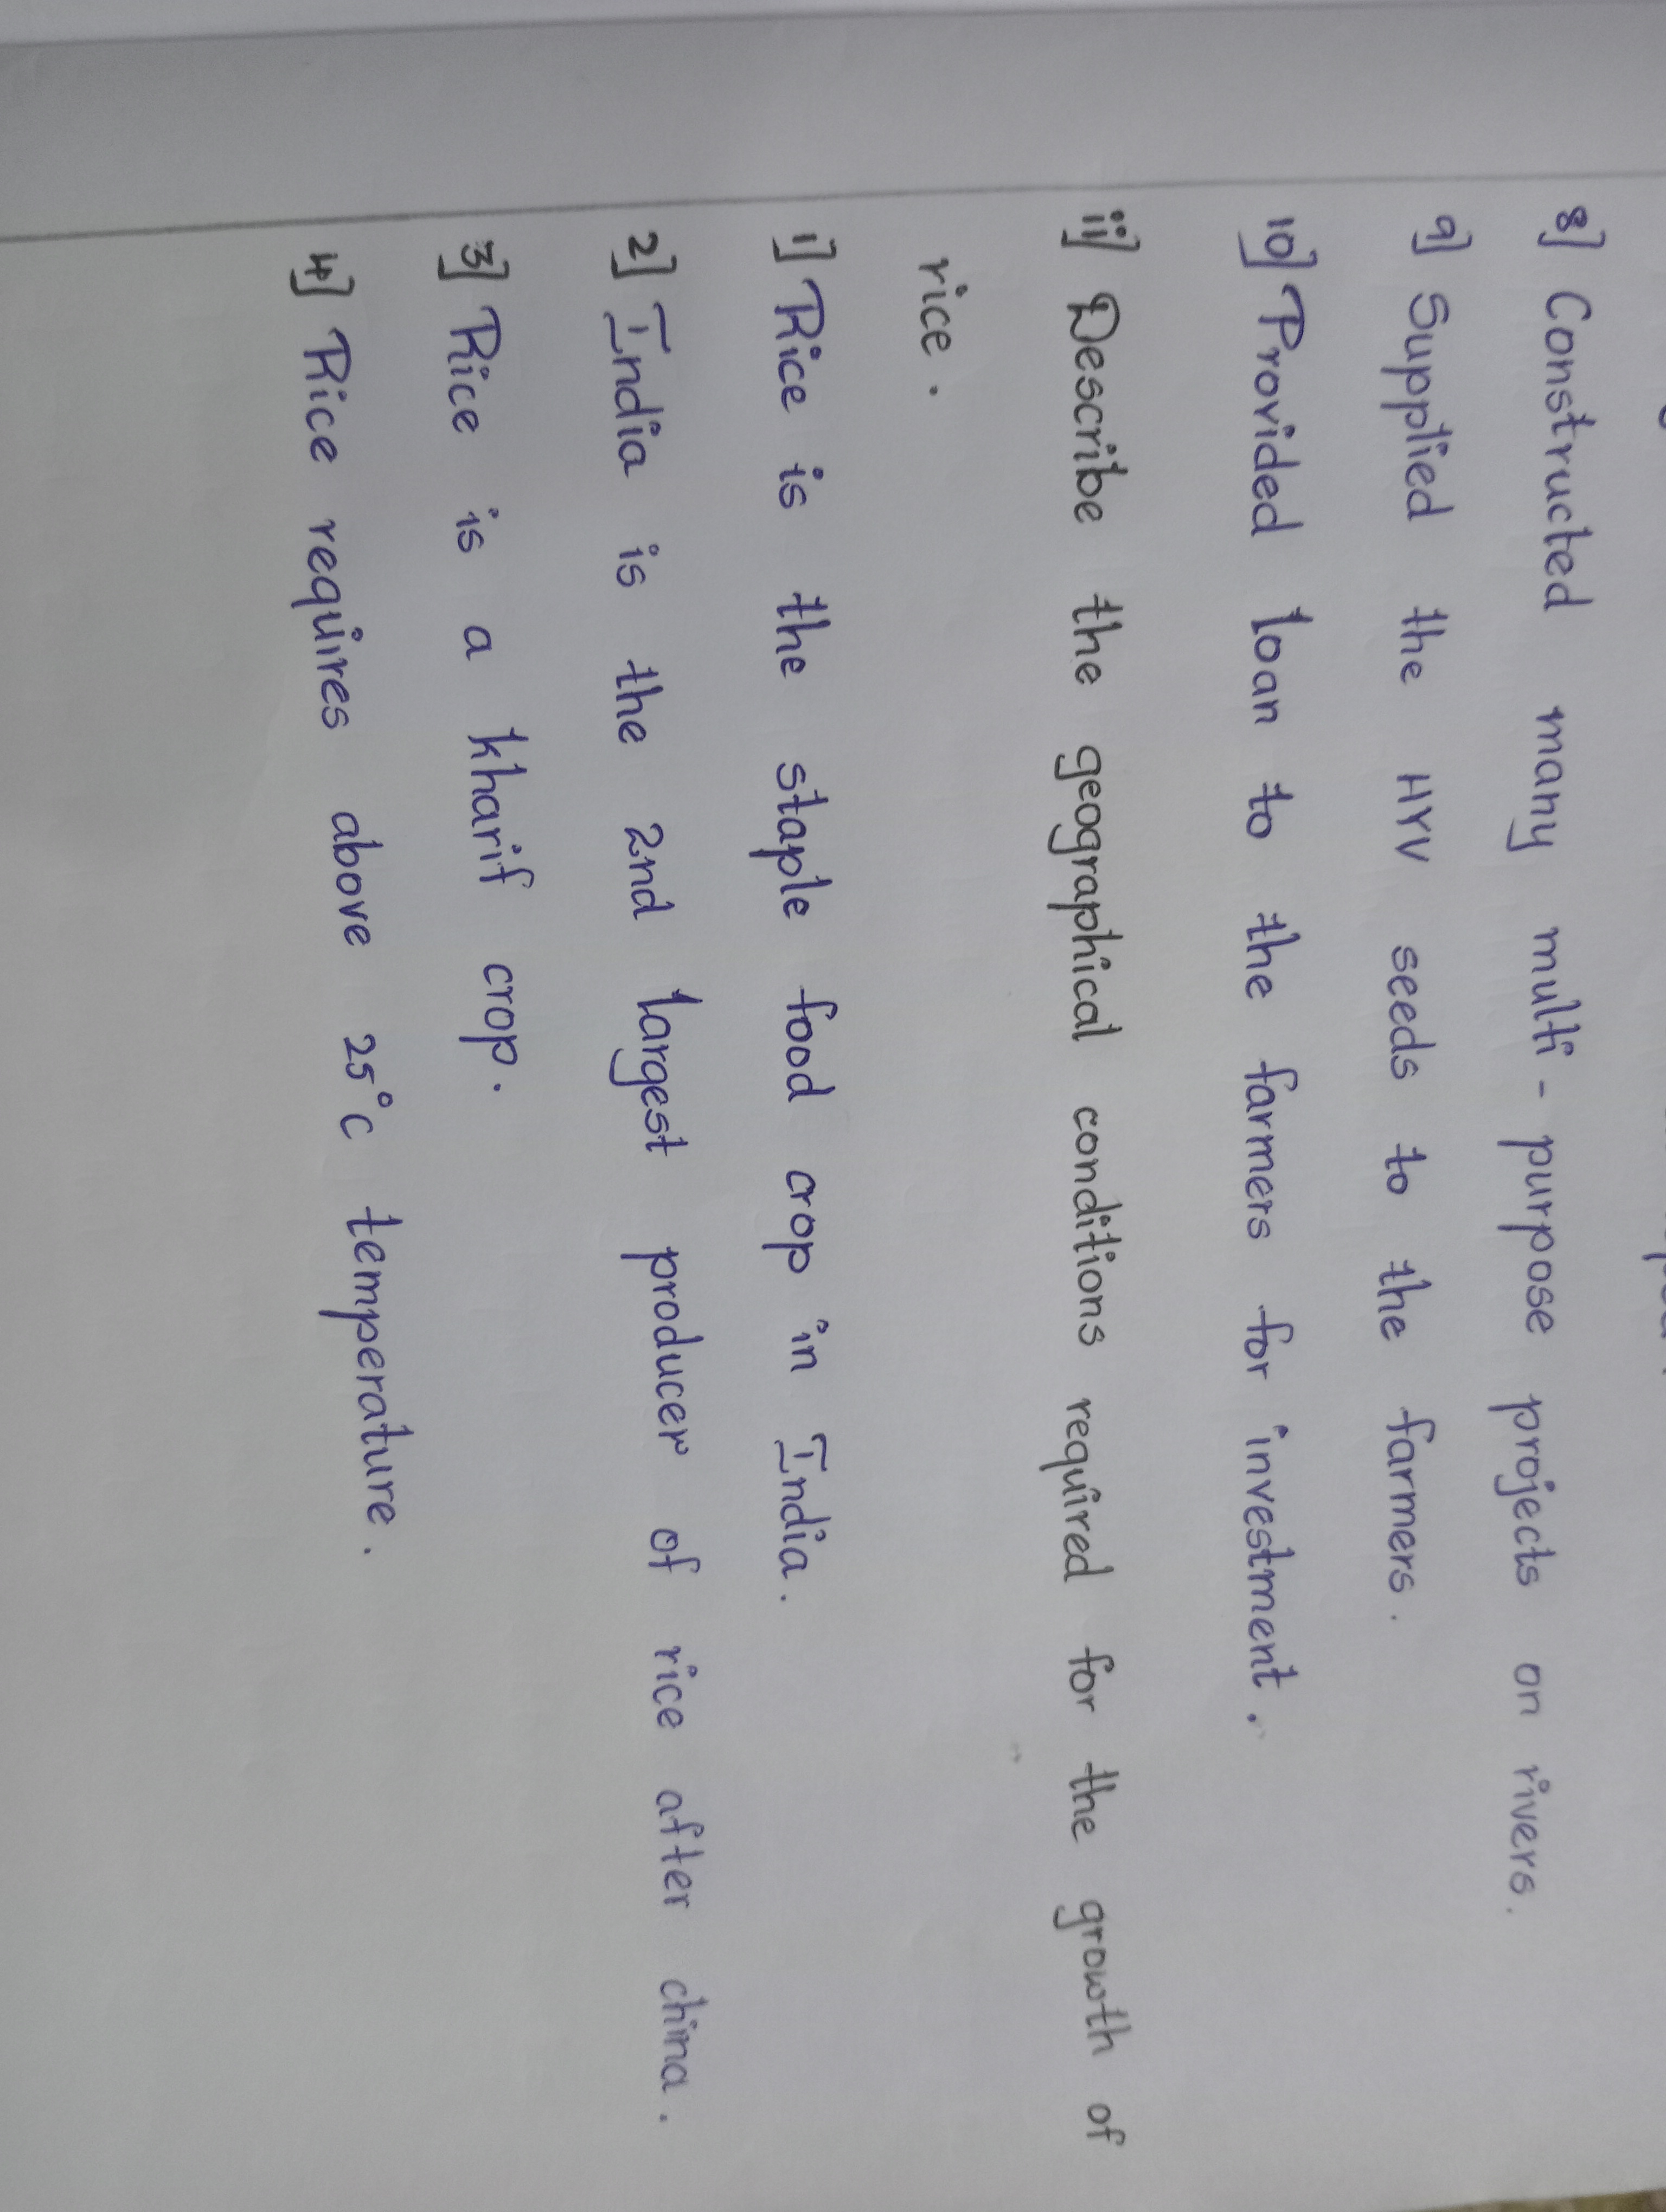 8] Constructed many multi-purpose projects on rivers.
9] Supplied the HYV seeds to the farmers.
10] Provided loan to the farmers for investment.
ii] Describe the geographical conditions required for the growth of
rice.
1] Rice is the staple food crop in India.
2] India is the 2nd largest producer of rice after china.
3] Rice is a kharif crop.
4] Rice requires above 25°c temperature.